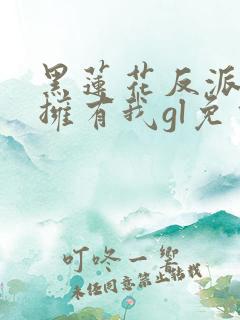 黑蓮花反派
擁有我gl免
叮咚一響
未经同意禁止转载